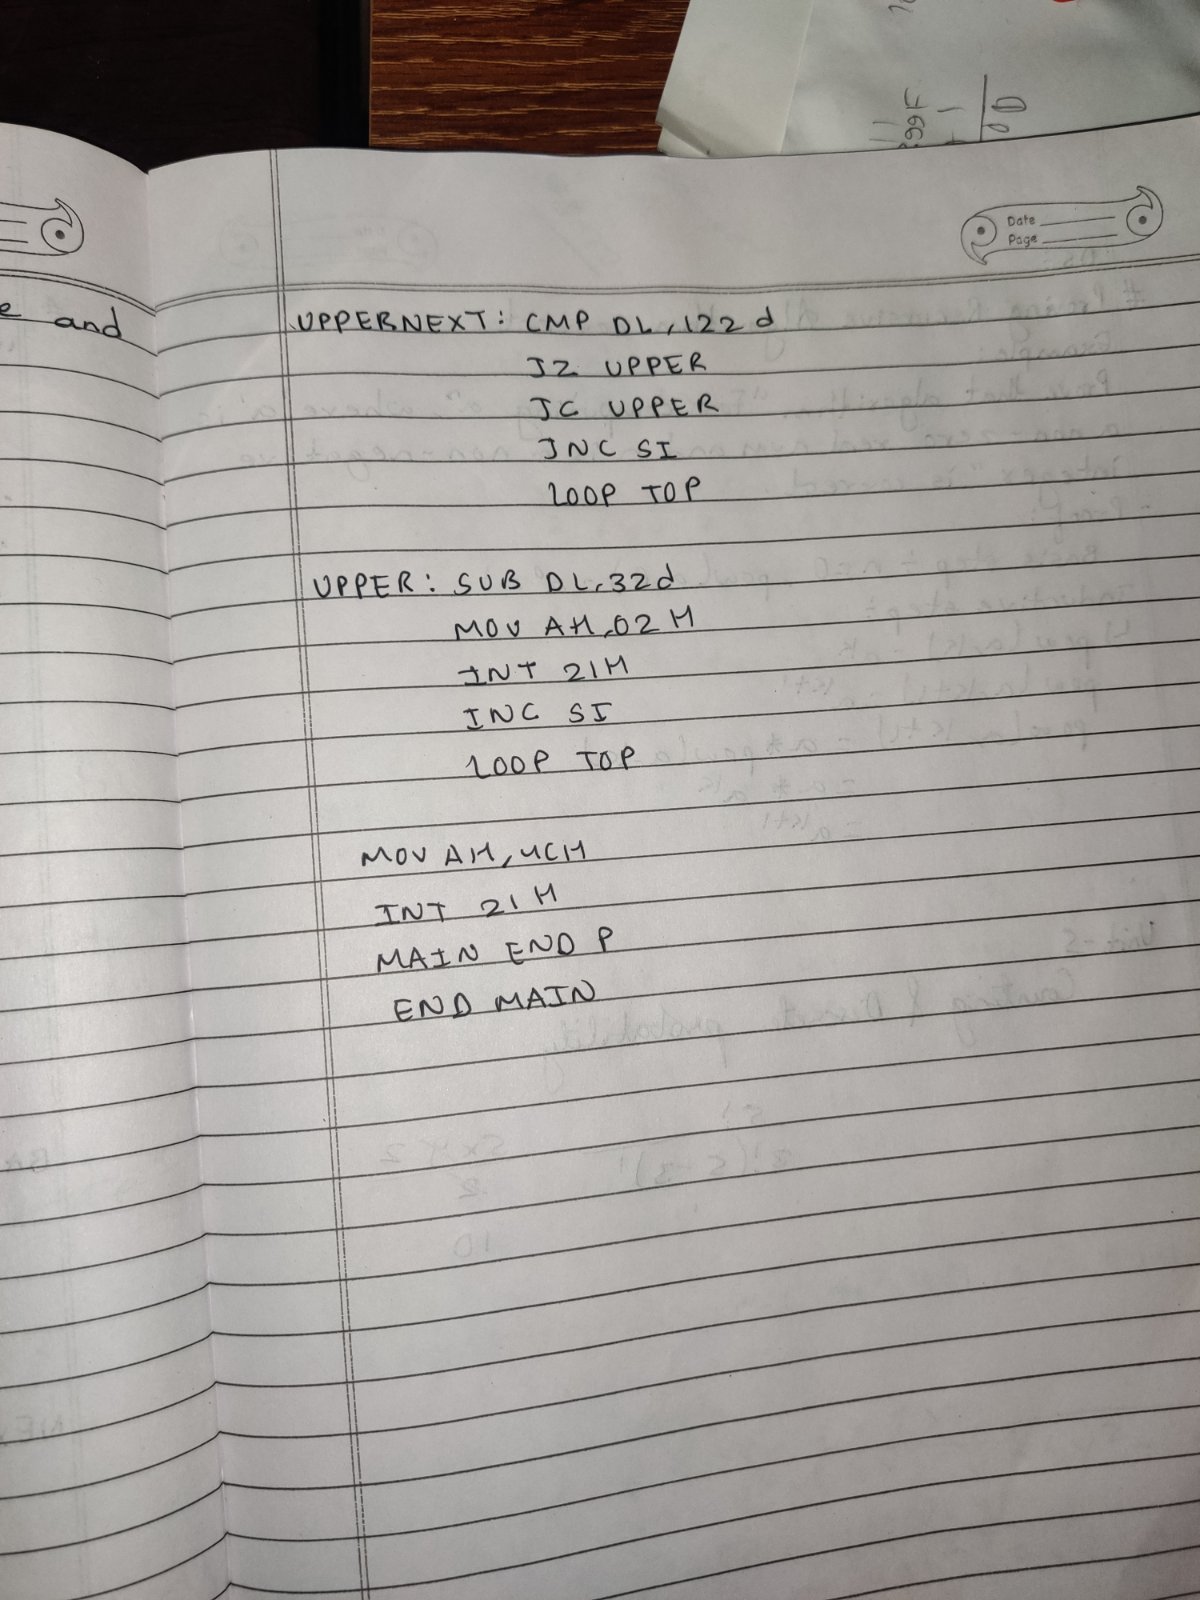 e and
Date
Page
UPPERNEXT: CMP DL, 122 d
JZ UPPER
JC UPPER
INC SI
LOOP TOP
UPPER: SUB DL, 32d
MOV AH, 02 H
INT 21H
INC SI
LOOP TOP
MOV AH, 4CH
INT 21H
MAIN END P
END MAIN